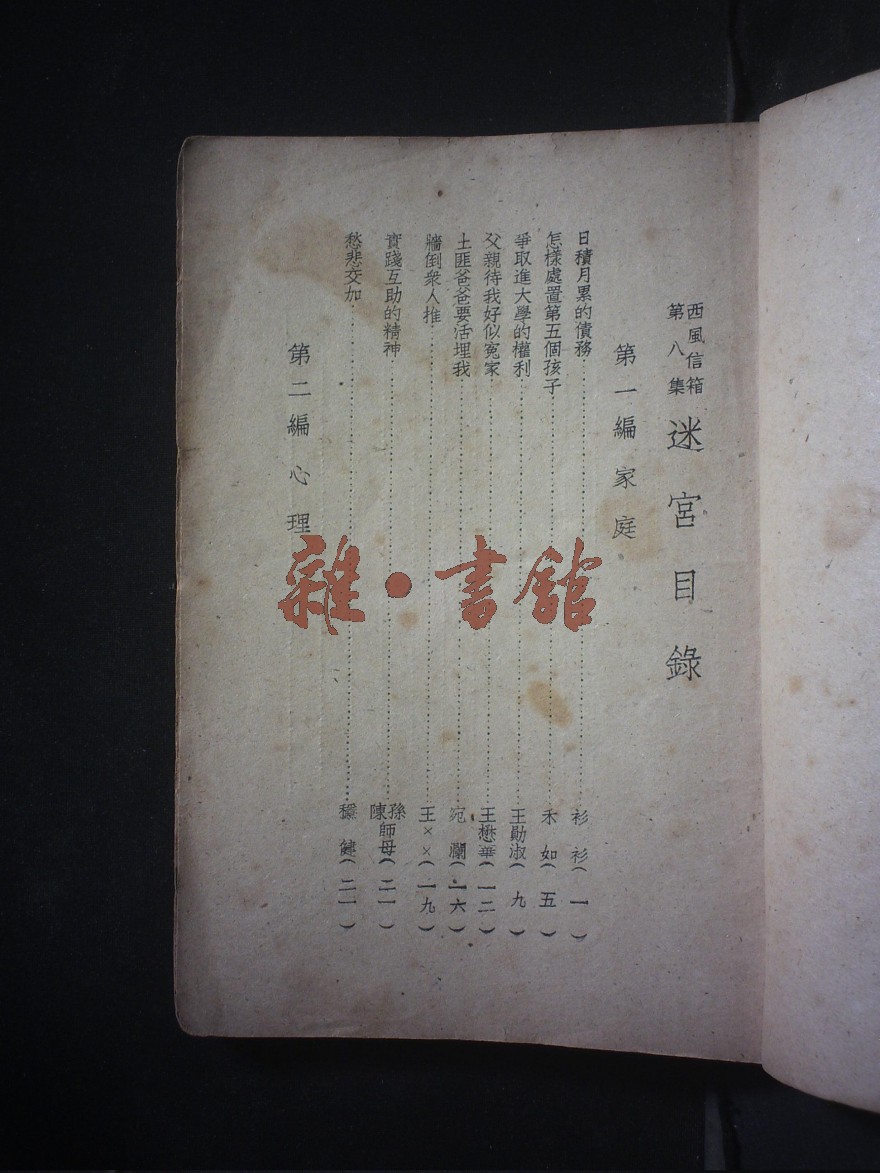 西風信箱
第八集
迷宮目錄
第一編 家庭
日積月累的債務……衫 衫(一)
怎樣處置第五個孩子……禾 如(五)
爭取進大學的權利……王勛淑(九)
父親待我好似冤家……王懋華(一二)
土匪爸爸要活埋我……宛 瀾(一六)
牆倒衆人推……王××(一九)
實踐互助的精神……孫陳師母(二一)
愁悲交加……(二一)
第二編 心理
雜·書館